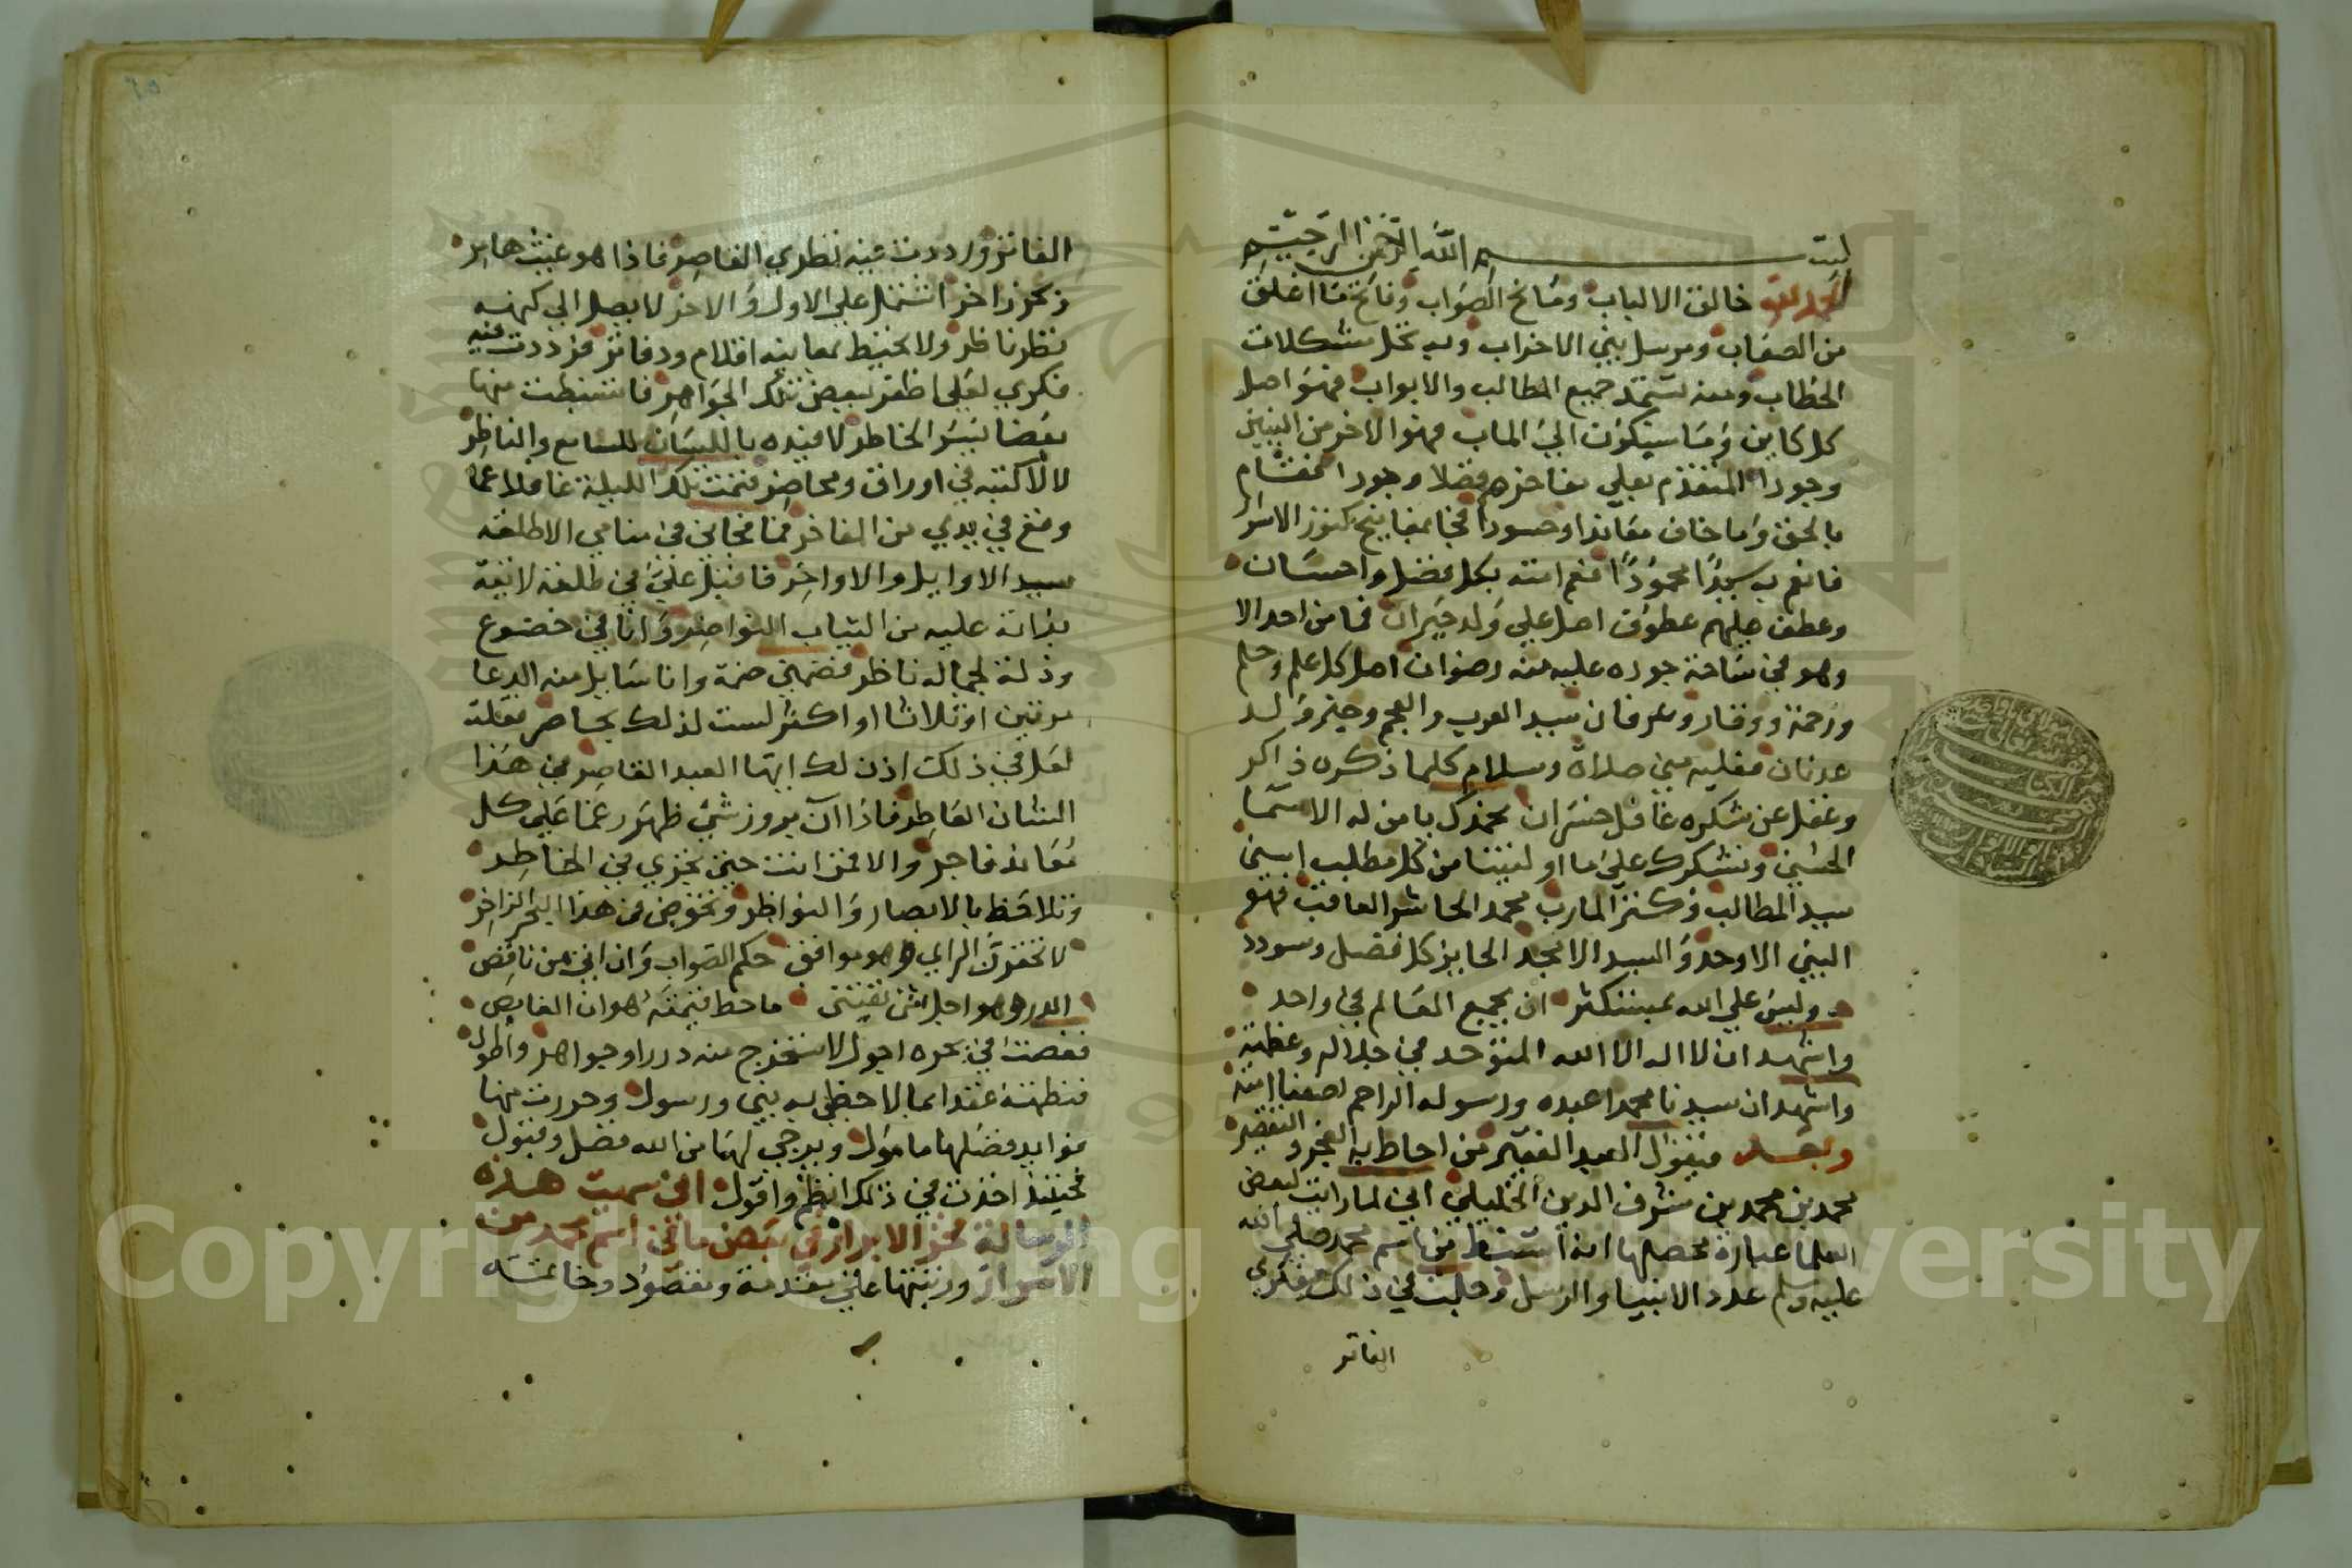 بسم الله الرحمن الرحيم
الحمد لله خالق الالباب ومانح الصواب وفاتح ما اغلق
من الصعاب ومرسل بني الاحزاب وبه تحل مشكلات
الخطاب ومنه تستمد جميع المطالب والابواب فهو اصل
كل كاين وما سيكون الي الماب فهو الاخر من النبيين
وجودا المتقدم علي مفاخرهم فضلا وجودا
بالحق وما خاف معاندا وحسودا بمفاتيح كنوز الاسرار
فانعم به سيدا محمودا فنعم امته بكل فضل واحسان
وعطف عليهم عطوف اصل علي ولد حيران فما من احد الا
وهو في ساحة جوده عليه منه رضوان اصل كل علم وحلم
ورحمة ووقار وعرفان سيد العرب والعجم وخير ولد
عدنان فعليه مني صلاة وسلام كلما ذكره ذاكر
وغفل عن شكره غافل خسران نحمدك يا من له الاسما
الحسني ونشكرك علي ما اوليتنا من كل مطلب اسني
سيد المطالب وكنز المارب محمد الحاشر العاقب فهو
النبي الاوحد والسيد الامجد الحايز كل فضل وسودد
وليس علي الله بمستنكر ان يجمع العالم في واحد
واشهد ان لا اله الا الله المتوحد في جلاله وعظمته
واشهد ان سيدنا محمدا عبده ورسوله الراحم لضعفا امته
وبعد فيقول العبد الفقير من احاط به العجز والتقصير
محمد بن محمد بن شرف الدين الخليلي اني لما رايت لبعض
العلما عبارة محصلها انه استنبط من اسم محمد صلي الله
عليه وسلم عدد الانبيا والرسل وجلت في ذلك بفكري
الفاتر
الفاتر ورددت فيه نظري القاصر فاذا هو غيث هامر
زخر زاخر اشتمل علي الاول والاخر لا يصل الي كنهه
نظر ناظر ولا يحيط بمعانيه اقلام ودفاتر فرددت فيه
فكري لعلي اظفر ببعض تلك الجواهر فاستنبطت منها
بعضا بيسر الخاطر لافيده باللسان للسامع والناظر
لا لاكتبه في اوراق ومحاضر فنمت تلك الليلة غافلا عما
وقع في يدي من المفاخر فما فجاني في منامي الا طلعة
سيد الاوايل والاواخر فاقبل علي في طلعة لايقة
بذاته عليه من الثياب النواضر وانا في خضوع
وذلة لجماله ناظر فضمني ضمة وانا سايل منه الدعا
مرتين او ثلاثا او اكثر لست لذلك بحاصر فقلت
لعل في ذلك اذن لك ايها العبد القاصر في هذا
الشان العاطر فاذا ان بروز شي ظهر رغما علي كل
معاند فاجر والا فمن انت حين تجري في الخاطر
وتلاحظ بالابصار والنواظر وتخوض في هذا البحر الزاخر
لا تحقرن الراي وهو موافق حكم الصواب وان اتي من ناقص
الدر وهو اجل شي يقتني ما حط قيمته هوان الغايص
فغصت في بحره اجول لاستخرج منه دررا وجواهر واطول
فنظمته عقدا بما لاحظني به نبي ورسول وحررت منها
فوايد فضلها مامول ويرجي لها من الله فضل وقبول
فحينيذ اخذت في ذلك انظم واقول اني سميت هذه
الرسالة فخر الابرار في بعض ما في اسم محمد من
الاسرار ورتبتها علي مقدمة ومقصود وخاتمة
Copyright © King Saud University